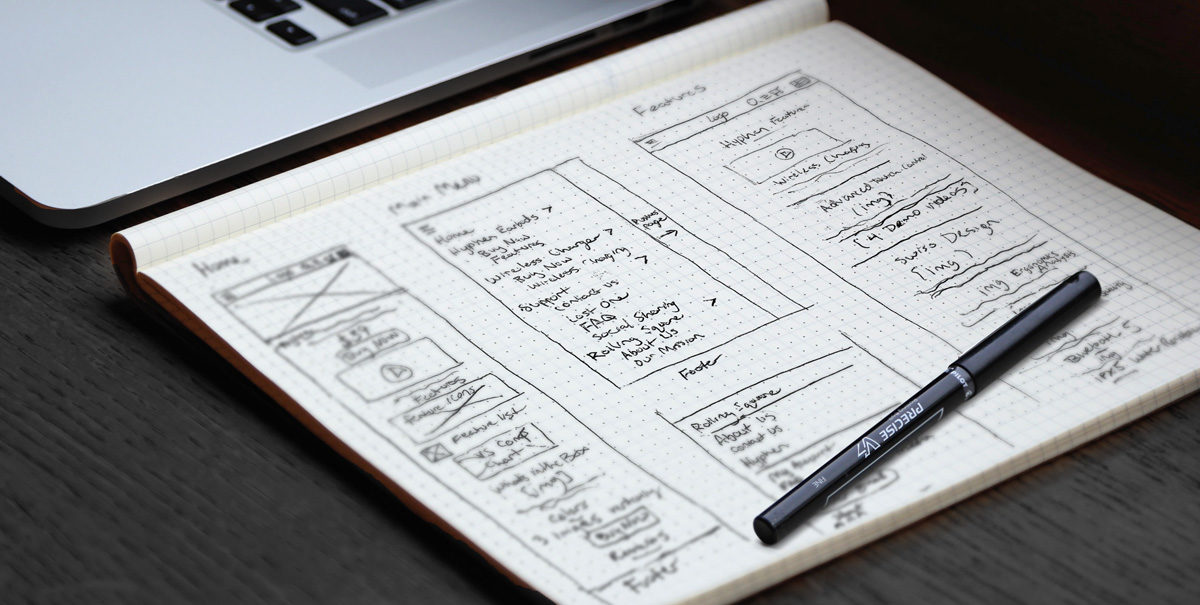 Home
Buy Now
Features
Feature Icons
Feature list
VS Comp
Chart
What's in the Box
[img]
Colors
3 images
Buy Now
Reviews
Footer
Main Menu
Home
Hyphen Earbuds >
Buy Now
Features
Wireless Charger >
Buy Now
Wireless Charging
Support >
Contact us
Lost One
FAQ
Social Sharing
Rolling Square >
About Us
Our Mission
Footer
Rolling Square
About Us
Contact us
Hyphen
My Account
Features
Logo
Hyphen Features
Wireless Charging
Advanced Touch Control
(img)
[4 Demo videos]
Swiss Design
[img]
img Ergonomics
Analysis
img
Bluetooth 5
img
IPX5
PRECISE V7
FINE
PILOT